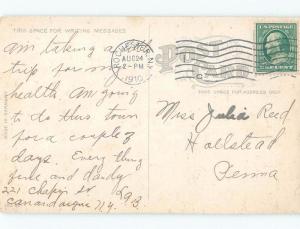 THIS SPACE FOR WRITING MESSAGES
am taking a
trip for my
health. Am going
to to this town
for a couple of
days. Every thing
fine and dandy
221 Chapin St
Canandaigua N.Y.
ROCHESTER, N.Y.
AUG 24
2-PM
1910
POST CARD
U.S. POSTAGE
THIS SPACE FOR ADDRESS ONLY
Miss Julia Reed
Hallstead
Penna